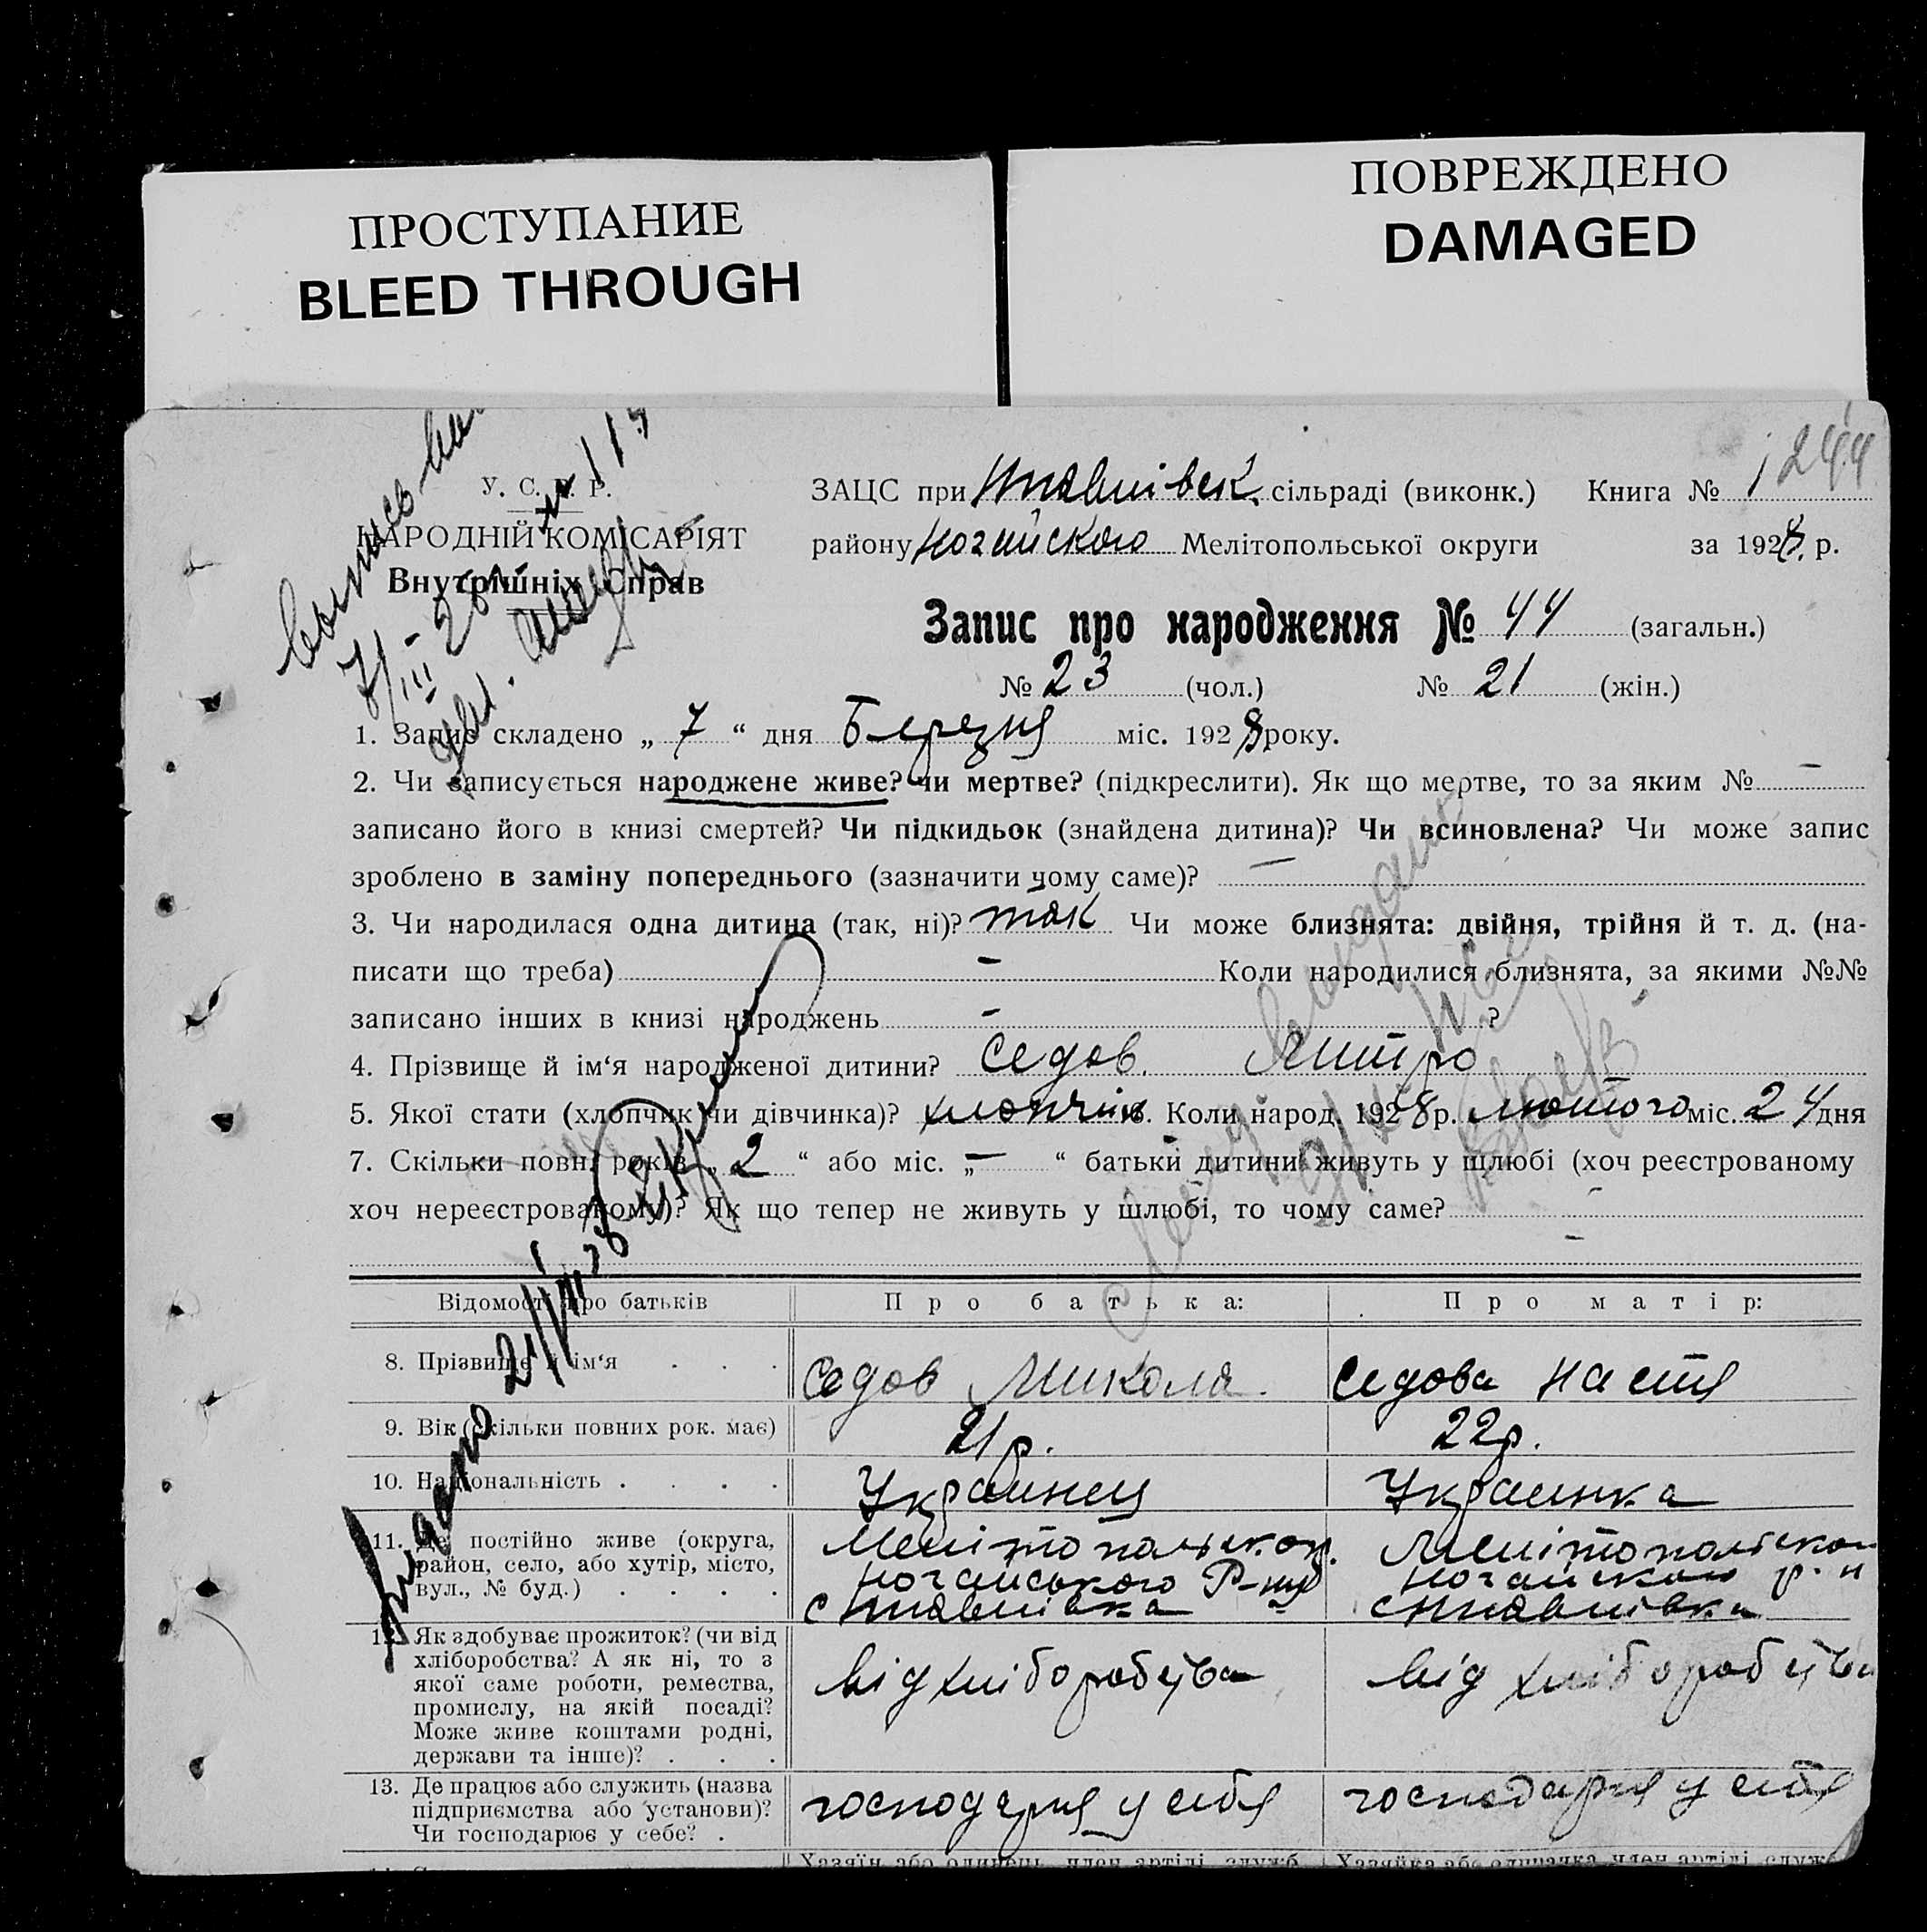 ПРОСТУПАНИЕ
BLEED THROUGH
ПОВРЕЖДЕНО
DAMAGED
1244
У. С. Р. Р.
НАРОДНІЙ КОМІСАРІЯТ
Внутрішніх Справ
7/III 28
ЗАЦС при сільраді (виконк.) Книга № 1
району Ногайского Мелітопольської округи за 1928. р.
Запис про народження № 44 (загальн.)
№ 23 (чол.) № 21 (жін.)
1. Запис складено „ 7 “ дня Березня міс. 1928 року.
2. Чи записується народжене живе? чи мертве? (підкреслити). Як що мертве, то за яким № —
записано його в книзі смертей? Чи підкидьок (знайдена дитина)? Чи всиновлена? Чи може запис
зроблено в заміну попереднього (зазначити чому саме)? —
3. Чи народилася одна дитина (так, ні)? так Чи може близнята: двійня, трійня й т. д. (на-
писати що треба) — Коли народилися близнята, за якими №№
записано інших в книзі народжень — ?
4. Прізвище й ім‘я народженої дитини? Седов. Митро
5. Якої стати (хлопчик чи дівчинка)? хлопчик. Коли народ. 1928 р. лютого міс. 24 дня
7. Скільки повн. років „ 2 “ або міс. „ — “ батьки дитини живуть у шлюбі (хоч реєстрованому
хоч нереєстрованому)? Як що тепер не живуть у шлюбі, то чому саме? —
Відомості про батьків Про батька: Про матір:
8. Прізвище й ім‘я . . . Седов Микола. Седова Настя
9. Вік (скільки повних рок. має) 21 р. 22 р.
10. Національність . . . . Украинец Украинка
11. Де постійно живе (округа,
район, село, або хутір, місто,
вул., № буд.) . . . .
Мелітопольск. ок.
Ногайського Р-ну
Мелітопольскои
Ногайскои р-н
12. Як здобуває прожиток? (чи від
хліборобства? А як ні, то з
якої саме роботи, ремества,
промислу, на якій посаді?
Може живе коштами родні,
держави та інше)? . . .
від хліборобства
від хліборобства
13. Де працює або служить (назва
підприємства або установи)?
Чи господарює у себе? .
господарня у себя
господарня у себя
Хазяїн або одинець, член артілі, служб. Хазяйка або одиначка, член артілі, служ